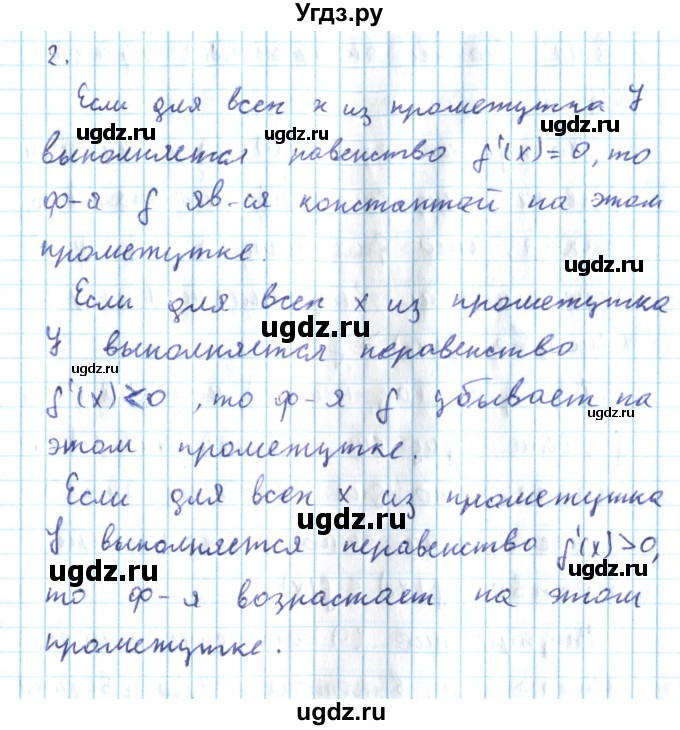 Угдз.ру
2.
Если для всех x из промежутка J
выполняется равенство f'(x) = 0, то
ф-я f яв-ся константой на этом
промежутке.
Если для всех x из промежутка
J выполняется неравенство
f'(x) < 0, то ф-я f убывает на
этом промежутке.
Если для всех x из промежутка
J выполняется неравенство f'(x) > 0,
то ф-я возрастает на этом
промежутке.
ugdz.ru
ugdz.ru
ugdz.ru
ugdz.ru
ugdz.ru
ugdz.ru
ugdz.ru
ugdz.ru
ugdz.ru
ugdz.ru
ugdz.ru